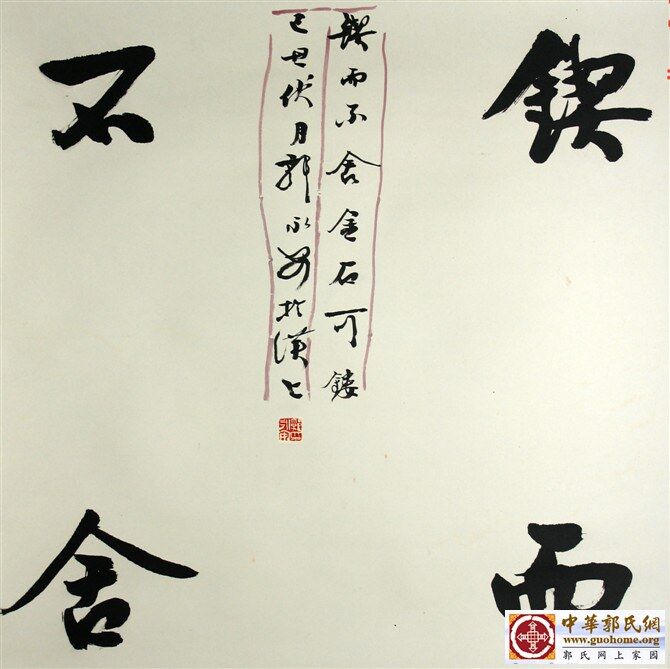 锲而
不舍
锲而不舍金石可镂
己丑伏月郭永安於漢上
中華郭氏網
www.guohome.org
郭氏网上家园